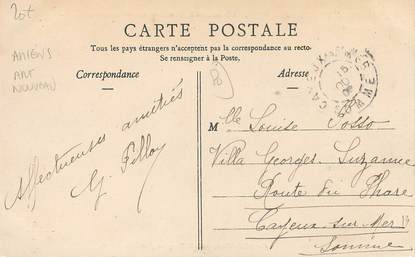 20t
AMIENS
ART
NOUVEAU
CARTE POSTALE
Tous les pays étrangers n'acceptent pas la correspondance au recto-
Se renseigner à la Poste.
Correspondance
Adresse
Affectueuses amitiés
G. Pilloy
Mlle Louise Josso
Villa Georges-Suzanne
Route du Phare
Cayeux sur Mer
Somme